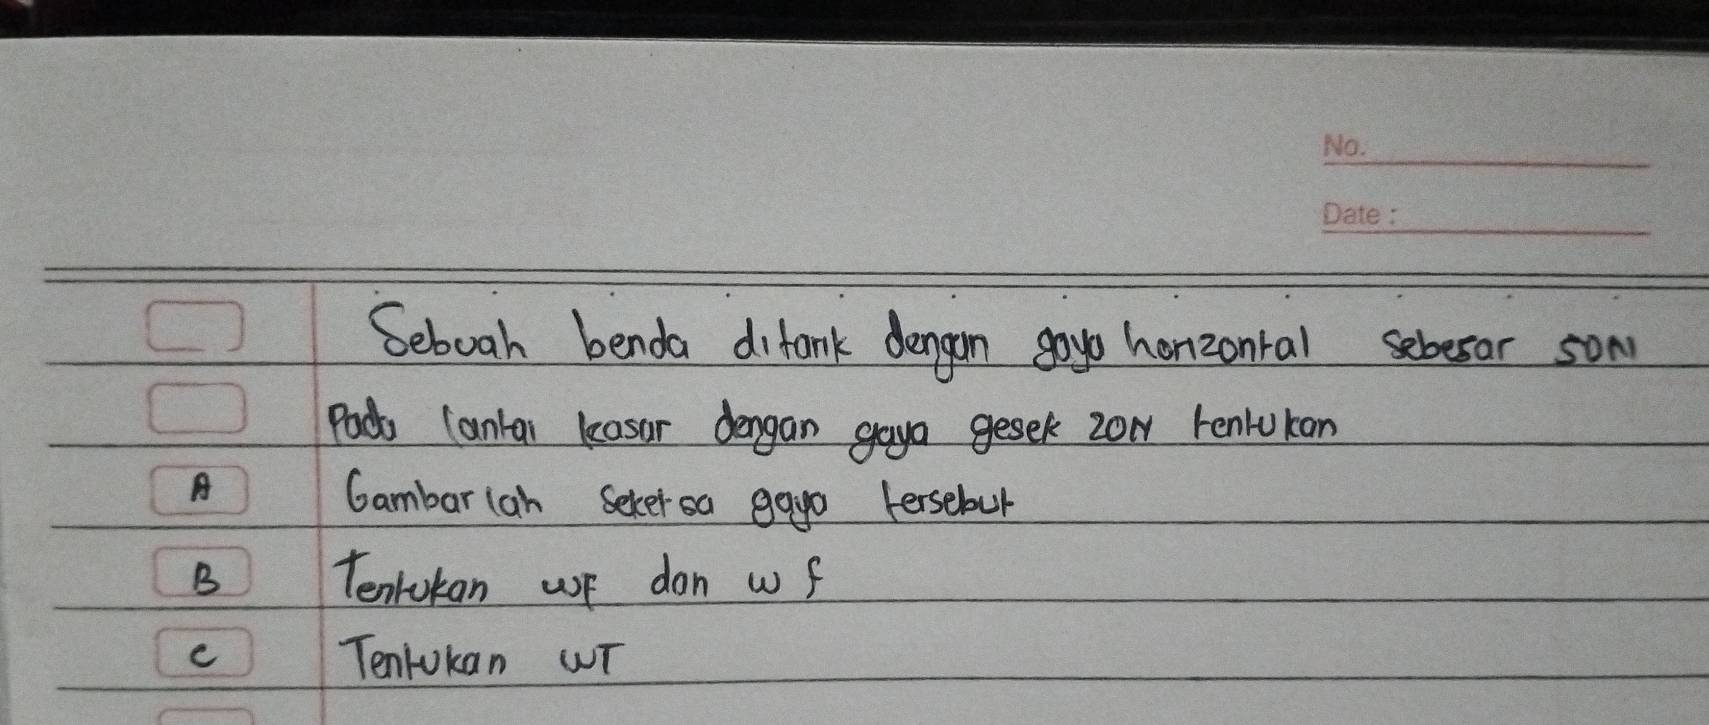 No.
Date :
Sebuah benda ditarik dengan gaya horizontal sebesar 50N
Pada lantai kasar dengan gaya gesek 20N tentukan
A Gambarlah seketsa gaya tersebut
B Tentukan WF dan w f
C Tentukan WT